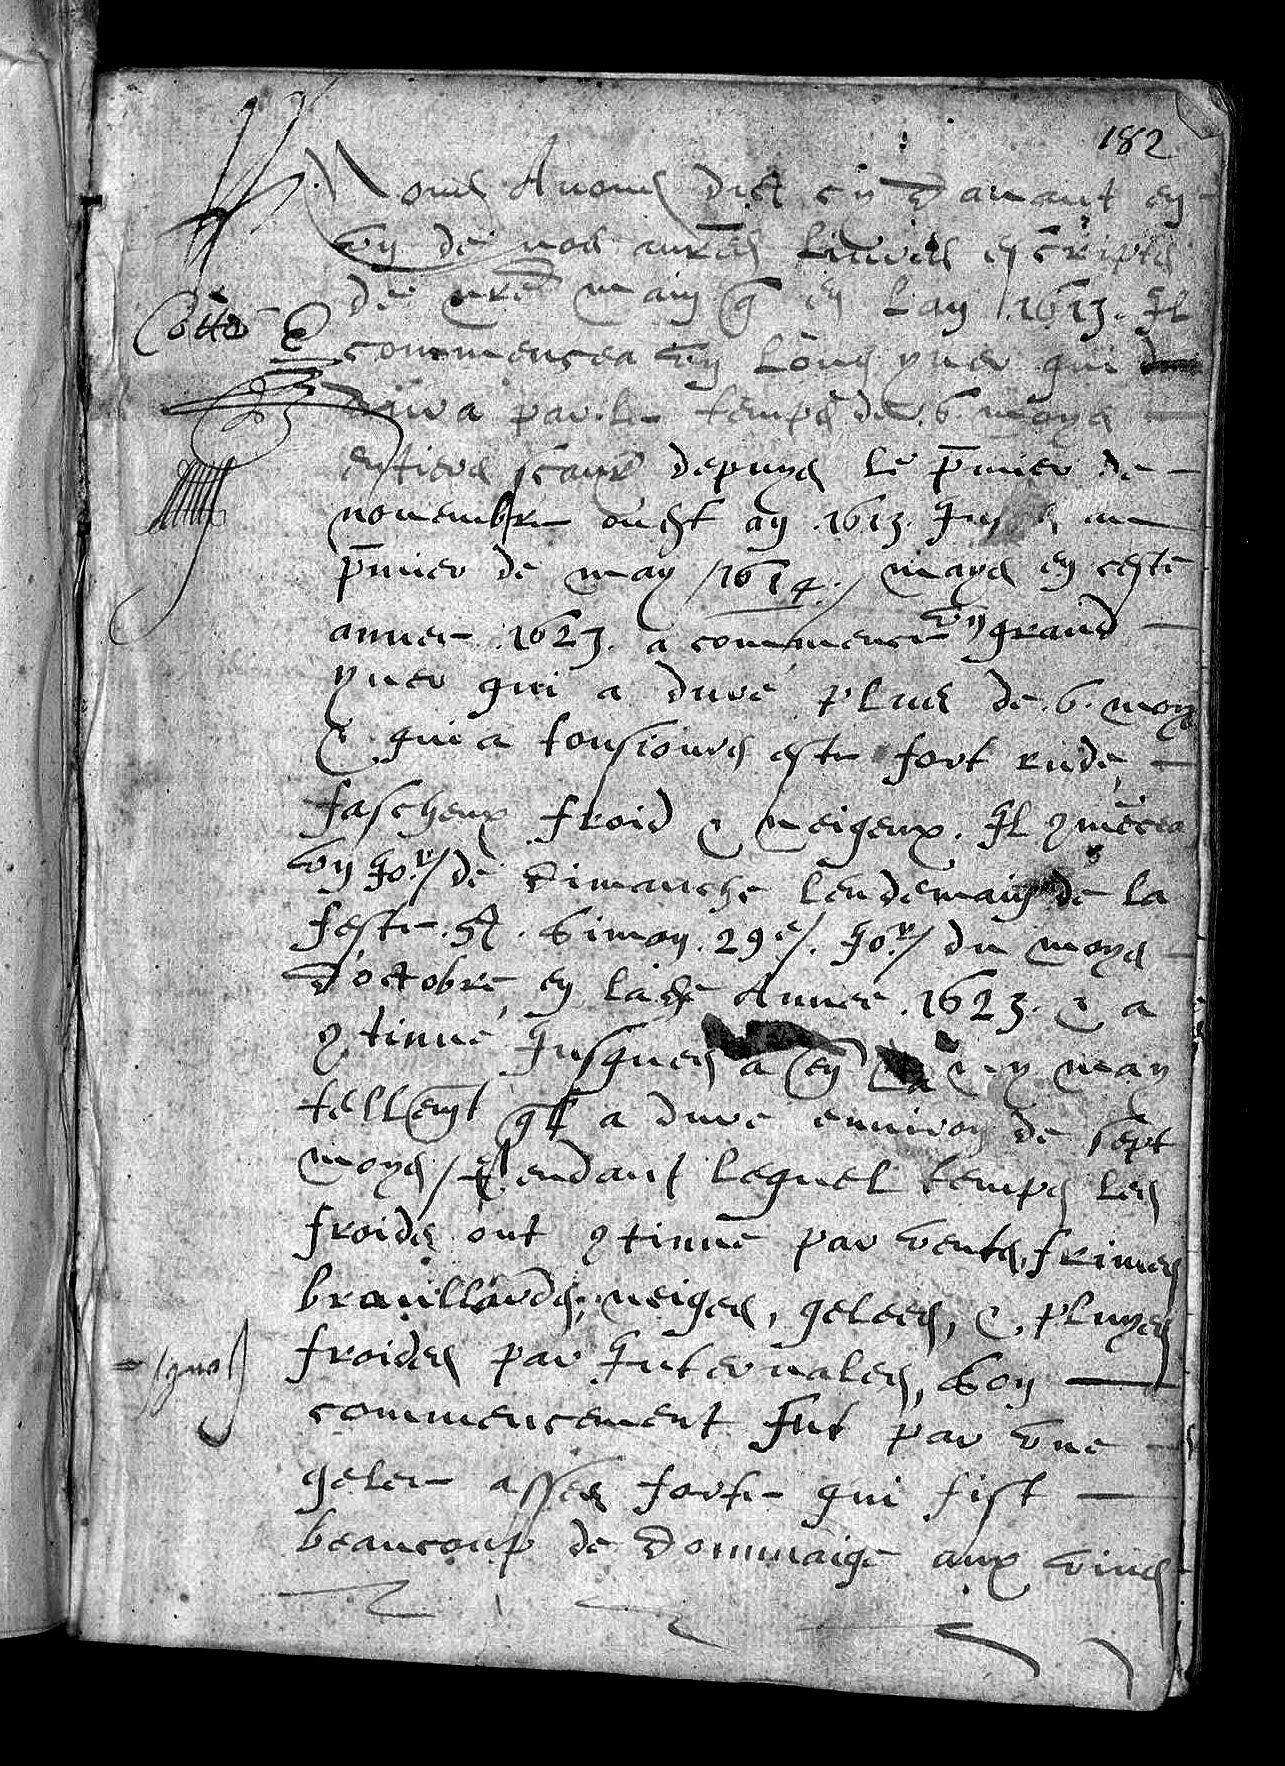 182
Nous Auons dict cy d auant en
vn de nos aūtes liures escripts
de nrē main q̄ en Lan 1613. Il
Cotté E
commencea vn long yuer qui
dura par le temps de .6. moys
entiers scauoir depuys le p̄mier de
nouembre oudt an .1613. Jusques au
p̄mier de may /1614./ mays en ceste
annee .1623. a commencé vn grand
yuer qui a duré plus de .6. moys
& qui a tousiours esté fort rude,
fascheux froid & neigeux. Il ɔmēcea
vn Jor./ de Dimanche lendemain de la
feste .St. Simon .29e/. Jor./ du moys
d'octobre, en ladte Annee .1623. & a
ɔtinué Jusques a en may
tellemt ql a duré enuiron de sept
moys / Pendant lequel temps les
froids ont ɔtinué par vents, frimes
brouillards, neiges, gelees, & pluyes
froides par Interuales, Son
commencement fut par vne
gelee asses forte qui fist
beaucoup de dommaige aux vins